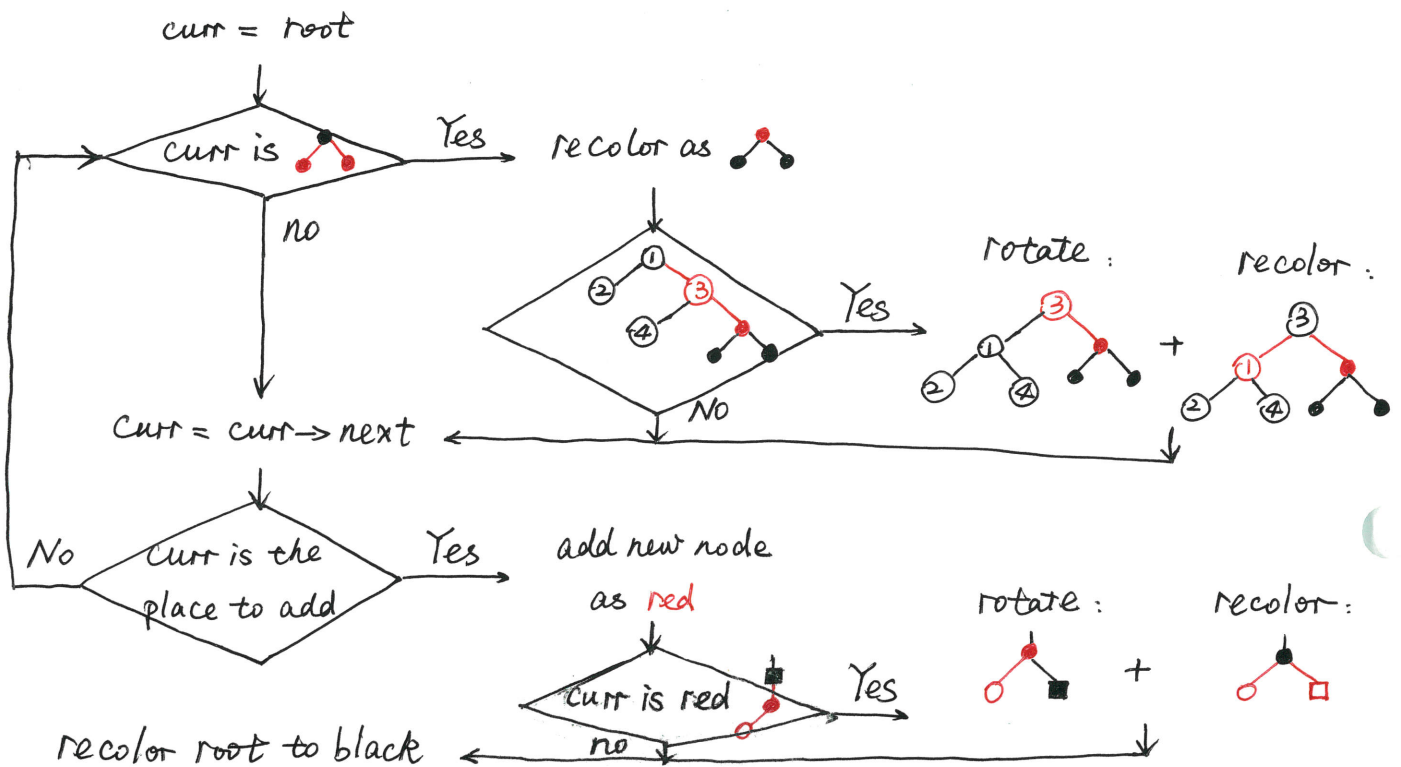 curr = root
curr is
Yes
recolor as
no
1
2
3
4
Yes
No
rotate :
3
1
2
4
+
recolor :
3
1
2
4
curr = curr→next
curr is the
place to add
No
Yes
add new node
as red
curr is red
Yes
no
rotate :
+
recolor :
recolor root to black